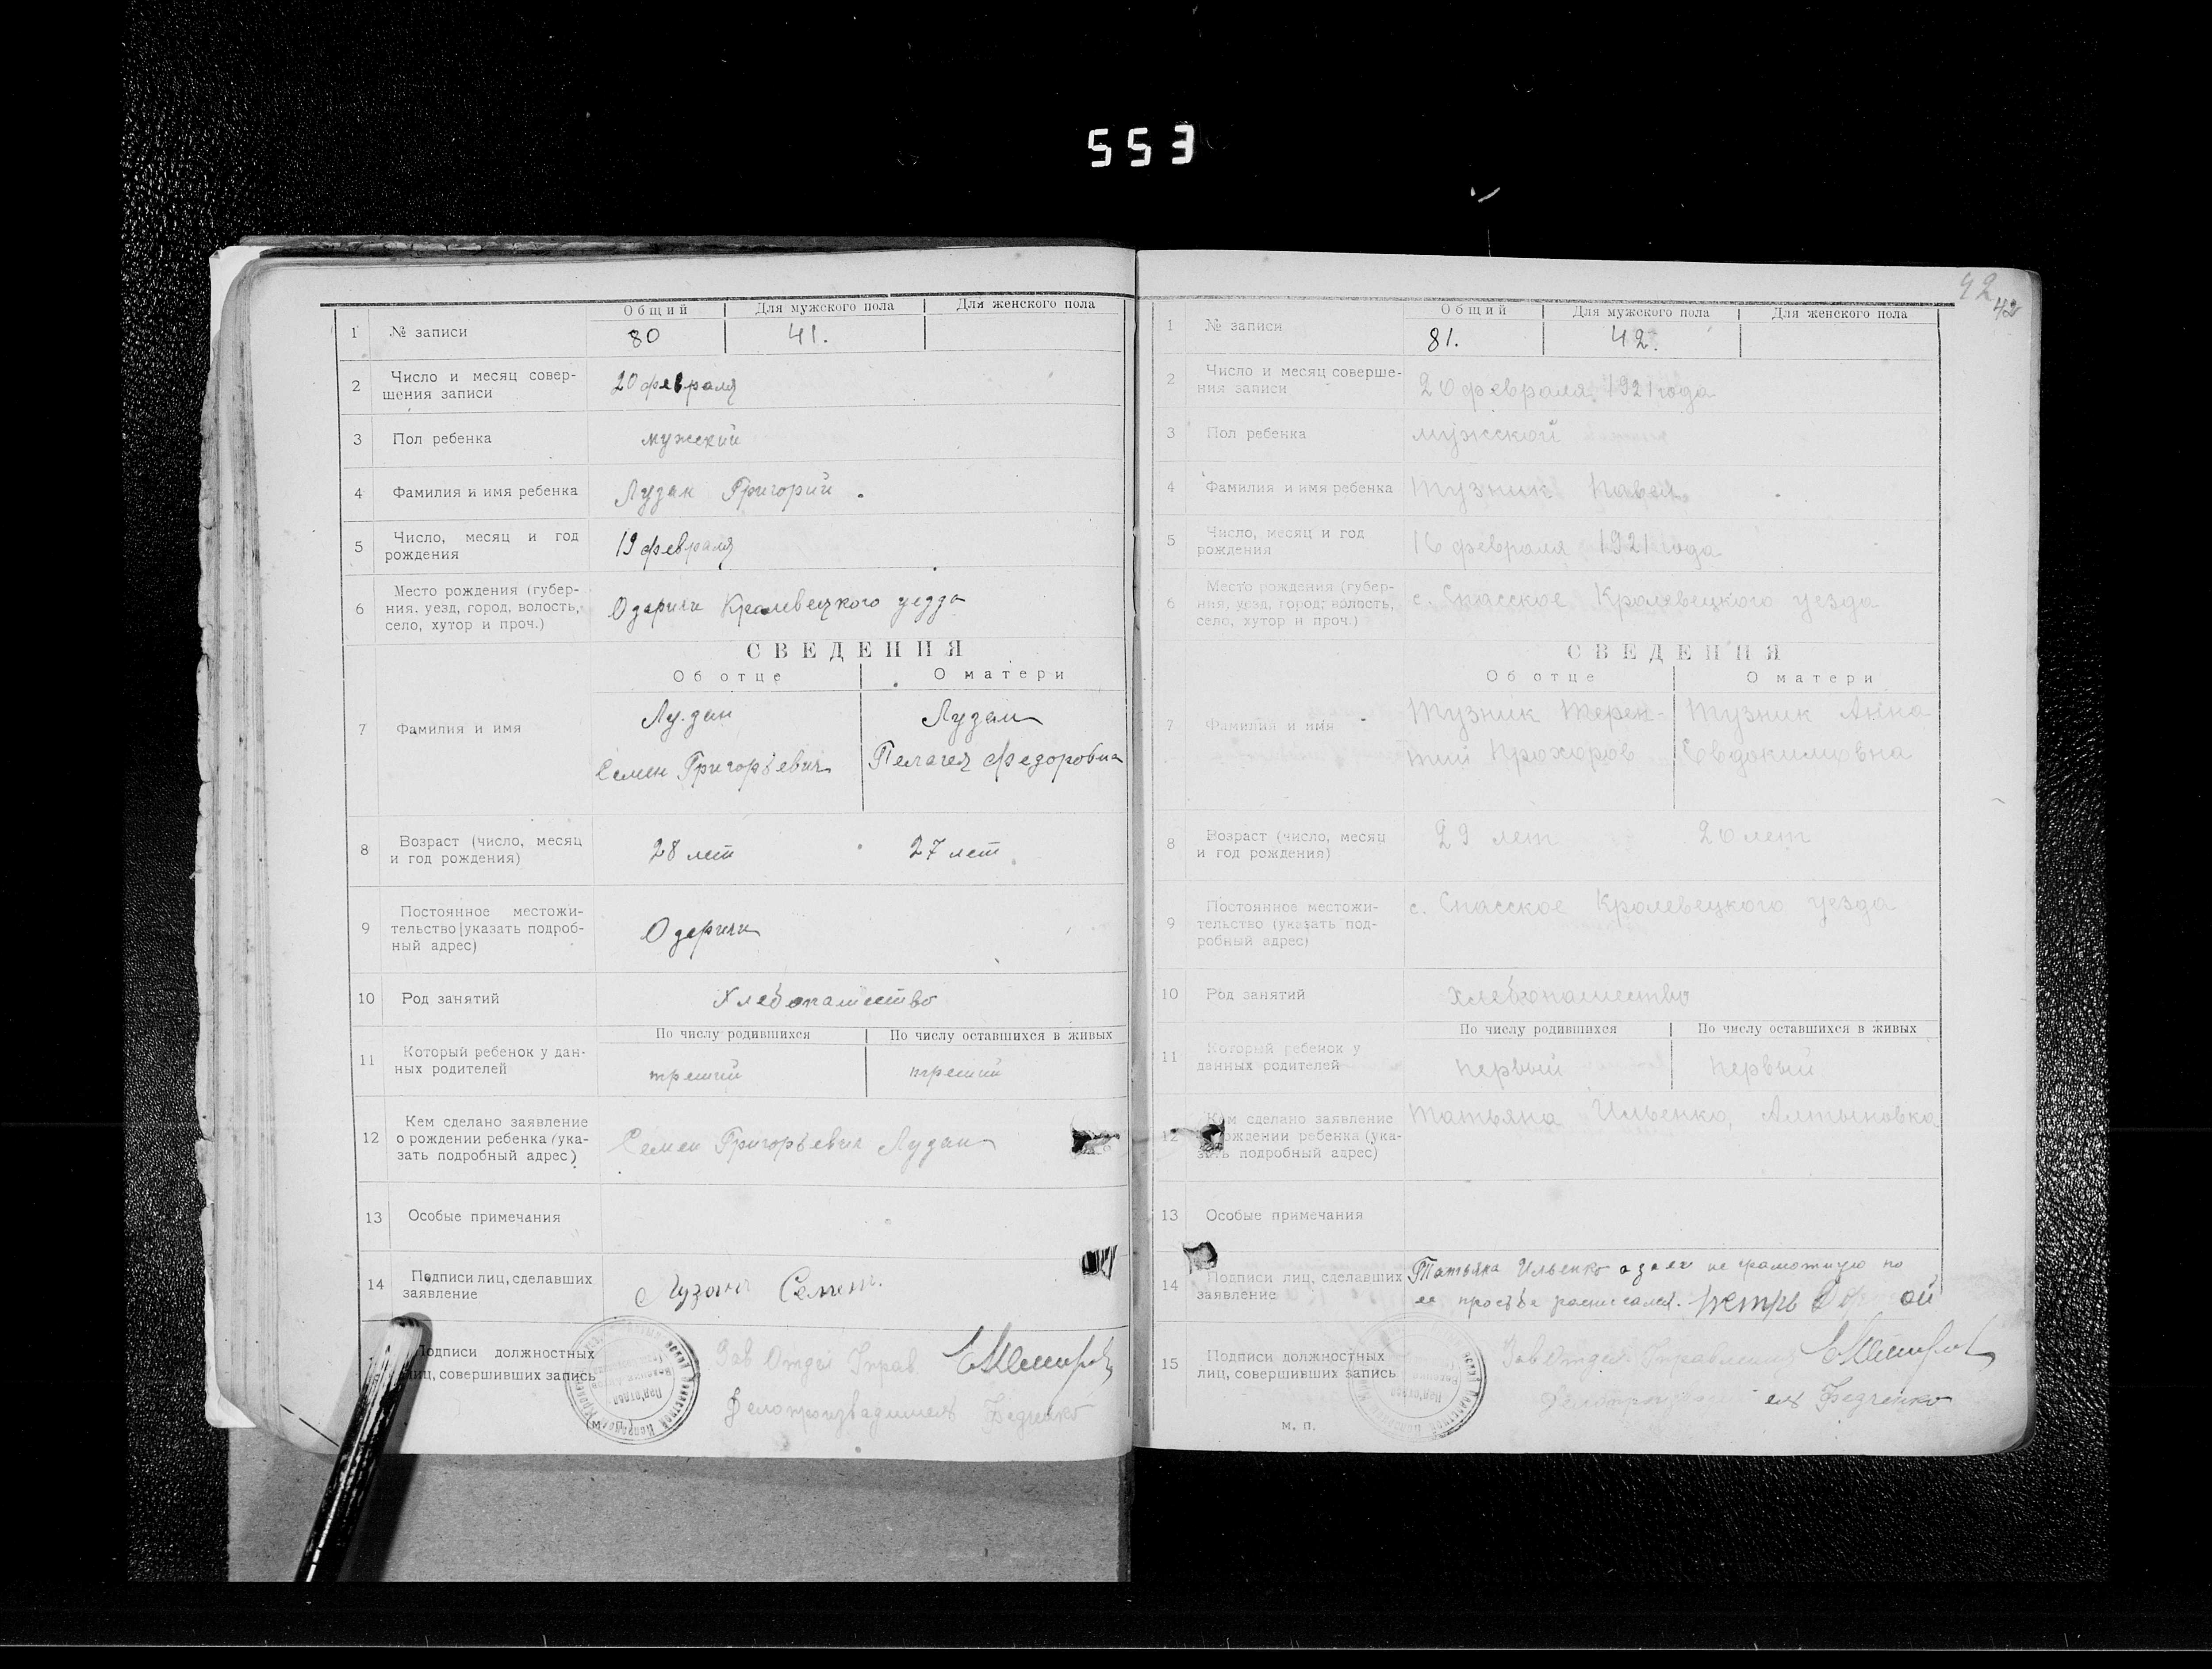 553
Общий
Для мужского пола
Для женского пола
1
№ записи
80
41.
2
Число и месяц совер-
шения записи
20 февраля
3
Пол ребенка
мужекий
4
Фамилия и имя ребенка
Лузан Григорий.
5
Число, месяц и год
рождения
19 февраля
6
Место рождения (губер-
ния, уезд, город, волость,
село, хутор и проч.)
Кролевецкого
СВЕДЕНИЯ
Об отце
О матери
7
Фамилия и имя
Лузан
Семен Григорьевич
Лузан
Пелагея Федоровна
8
Возраст (число, месяц
и год рождения)
28 лет
27 лет
9
Постоянное местожи-
тельство (указать подроб-
ный адрес)
10
Род занятий
Хлебопашество
По числу родившихся
По числу оставшихся в живых
11
Который ребенок у дан-
ных родителей
третий
третий
12
Кем сделано заявление
о рождении ребенка (ука-
зать подробный адрес)
Семен Григорьевич Лузан
13
Особые примечания
14
Подписи лиц, сделавших
заявление
Лузан Семен.
Подписи должностных
лиц, совершивших запись
Зав Отдел Управ.
Делопроизвадитель Федченко
(м. п.)
42
42
Общий
Для мужского пола
Для женского пола
1
№ записи
81.
42.
2
Число и месяц соверше-
ния записи
20 февраля 1921 года
3
Пол ребенка
мужской
4
Фамилия и имя ребенка
Тузник Павел
5
Число, месяц и год
рождения
16 февраля 1921 года
6
Место рождения (губер-
ния, уезд, город, волость,
село, хутор и проч.)
с. Спасское Кролевецкого уезда
СВЕДЕНИЯ
Об отце
О матери
7
Фамилия и имя
Тузник Терен-
тий Прохоров
Тузник Анна
Евдокимовна
8
Возраст (число, месяц
и год рождения)
29 лет
20 лет
9
Постоянное местожи-
тельство (указать под-
робный адрес)
с. Спасское Кролевецкого уезда
10
Род занятий
хлебопашество
По числу родившихся
По числу оставшихся в живых
11
Который ребенок у
данных родителей
первый
первый
12
Кем сделано заявление
о рождении ребенка (ука-
зать подробный адрес)
Татьяна Ильенко, Алтыновка
13
Особые примечания
14
Подписи лиц, сделавших
заявление
Татьяна Ильенко а за ея не грамотную по
ее просьбе росписался. Петръ
15
Подписи должностных
лиц, совершивших запись
Зав Отдел Управления
Федченко
м. п.